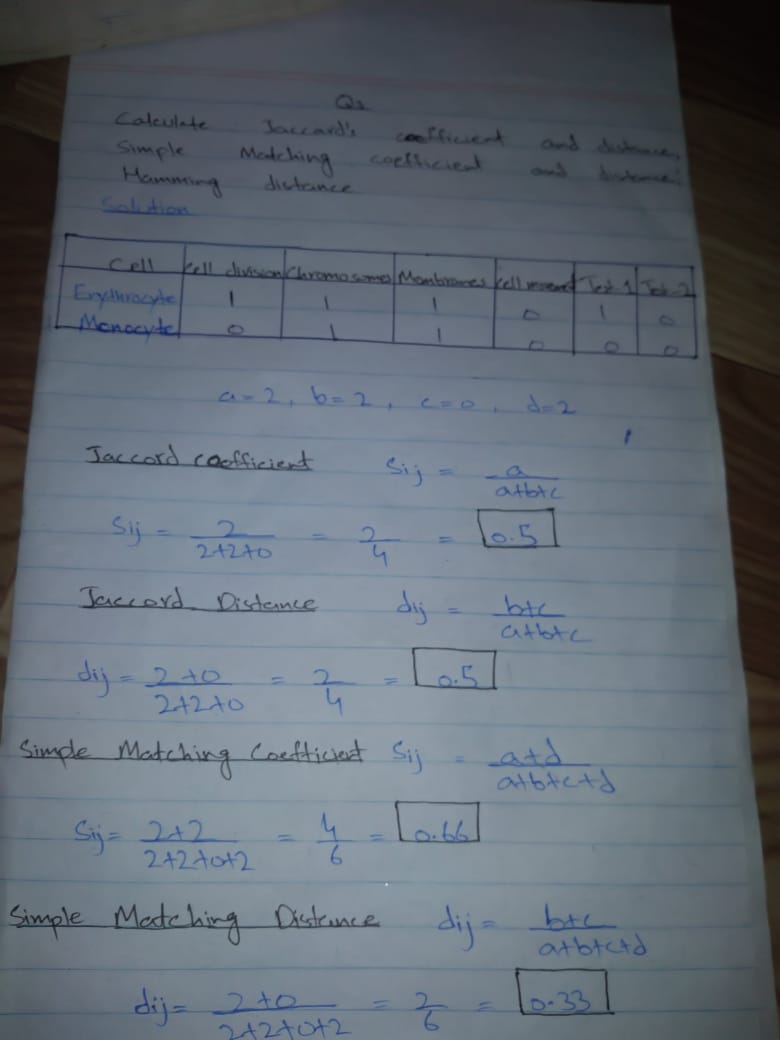 Q2
Calculate Jaccard's coefficient and distance,
Simple Matching coefficient and distance.
Hamming distance
Solution
Cell Cell division Chromosomes Membranes Cell Test 1 Test 2
Erythrocyte 1 1 1 0 1 0
Monocyte 0 1 1 0 0 0
a=2, b=2, c=0, d=2
Jaccord coefficient Sij = a/a+b+c
Sij = 2/2+2+0 = 2/4 = 0.5
Jaccord Distance dij = b+c/a+b+c
dij = 2+0/2+2+0 = 2/4 = 0.5
Simple Matching Coefficient Sij = a+d/a+b+c+d
Sij= 2+2/2+2+0+2 = 4/6 = 0.66
Simple Matching Distance dij= b+c/a+b+c+d
dij= 2+0/2+2+0+2 = 2/6 = 0.33